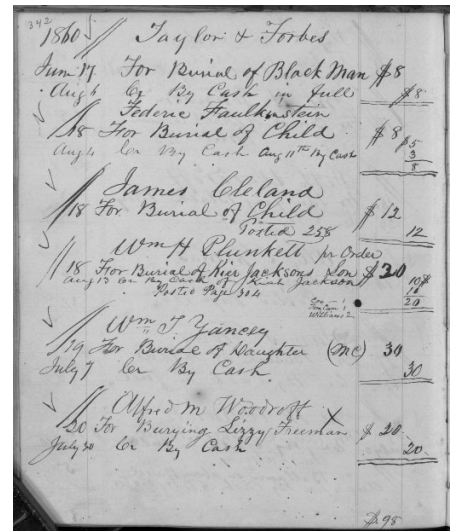 342
1860 // Taylor & Forbes
June 17 For Burial of Black Man $8
Aug 6 Cr By Cash in full $8
Federic Faulkenstein
18 For Burial of Child $8 $5
Aug 4 Cr By Cash Aug 11th By Cash 3
8
James Cleland
18 For Burial of Child $12
Posted 258 12
Wm H Plunkett pr Order
18 For Burial of Kiir Jacksons Son $20
Aug 13 Cr By Cash of Jackson 10
Posted Page 304
20
Williams 2
Wm T Yancey
19 For Burial of Daughter (MC) 30
July 7 Cr By Cash 30
Alfred M Woodroff X
20 For Burying Lizzy Freeman $20
July 30 Cr By Cash 20
$98